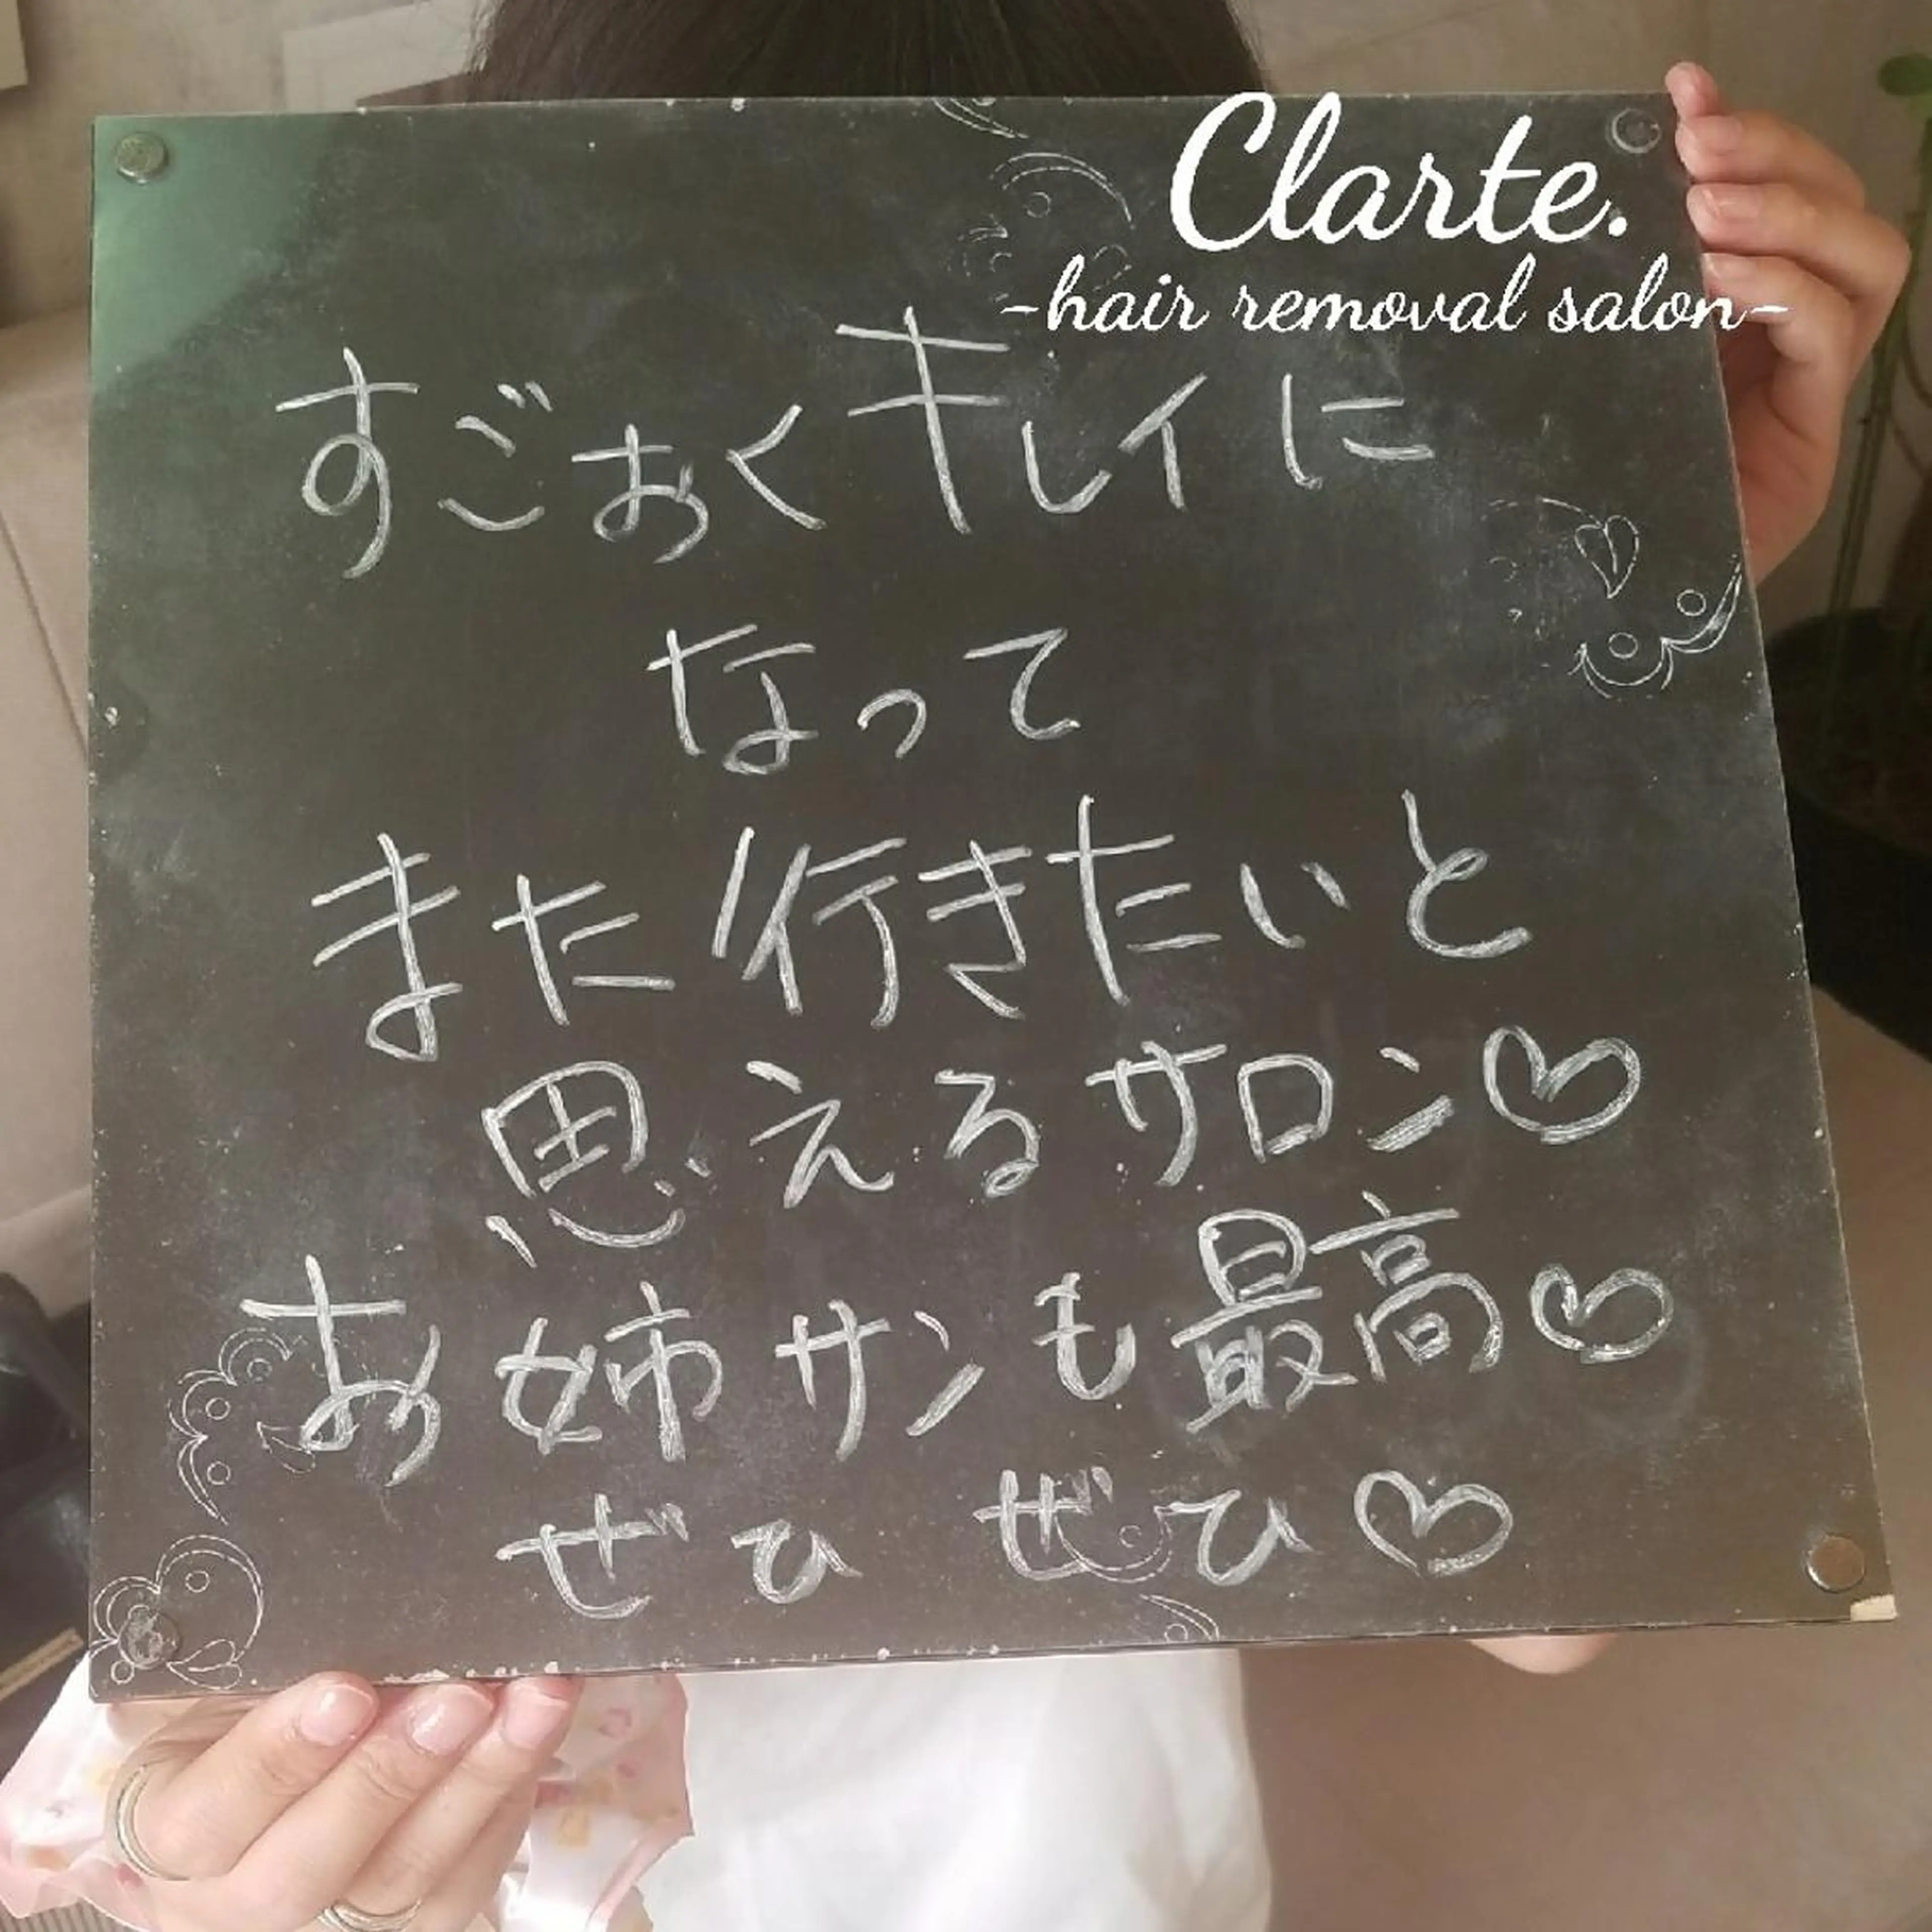 Clarte.
-hair removal salon-
すごおくキレイに
なって
また行きたいと
思えるサロン♡
お姉サンも最高♡
ぜひ ぜひ♡